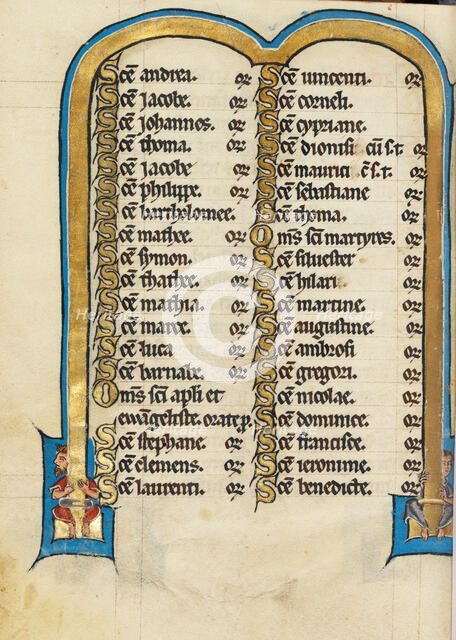 Sce andrea. or
Sce Jacobe. or
Sce Johannes. or
Sce thoma. or
Sce Jacobe or
Sce philippe. or
Sce bartholomee.
Sce mathee. or
Sce symon. or
Sce thathee. or
Sce mathia. or
Sce marce. or
Sce luca. or
Sce barnabe. or
Oms sci apli et
ewangeliste. orate p.
Sce stephane. or
Sce clemens. or
Sce laurenti. or
Sce vincenti. or
Sce corneli. or
Sce cypriane. or
Sce dionisi cu s.t or
Sce maurici c s.t or
Sce sebastiane or
Sce thoma. or
Oms sci martyres. or
Sce siluester or
Sce hilari. or
Sce martine. or
Sce augustine. or
Sce ambrosi or
Sce gregori. or
Sce nicolae. or
Sce dominice. or
Sce francisce. or
Sce ieronime. or
Sce benedicte. or